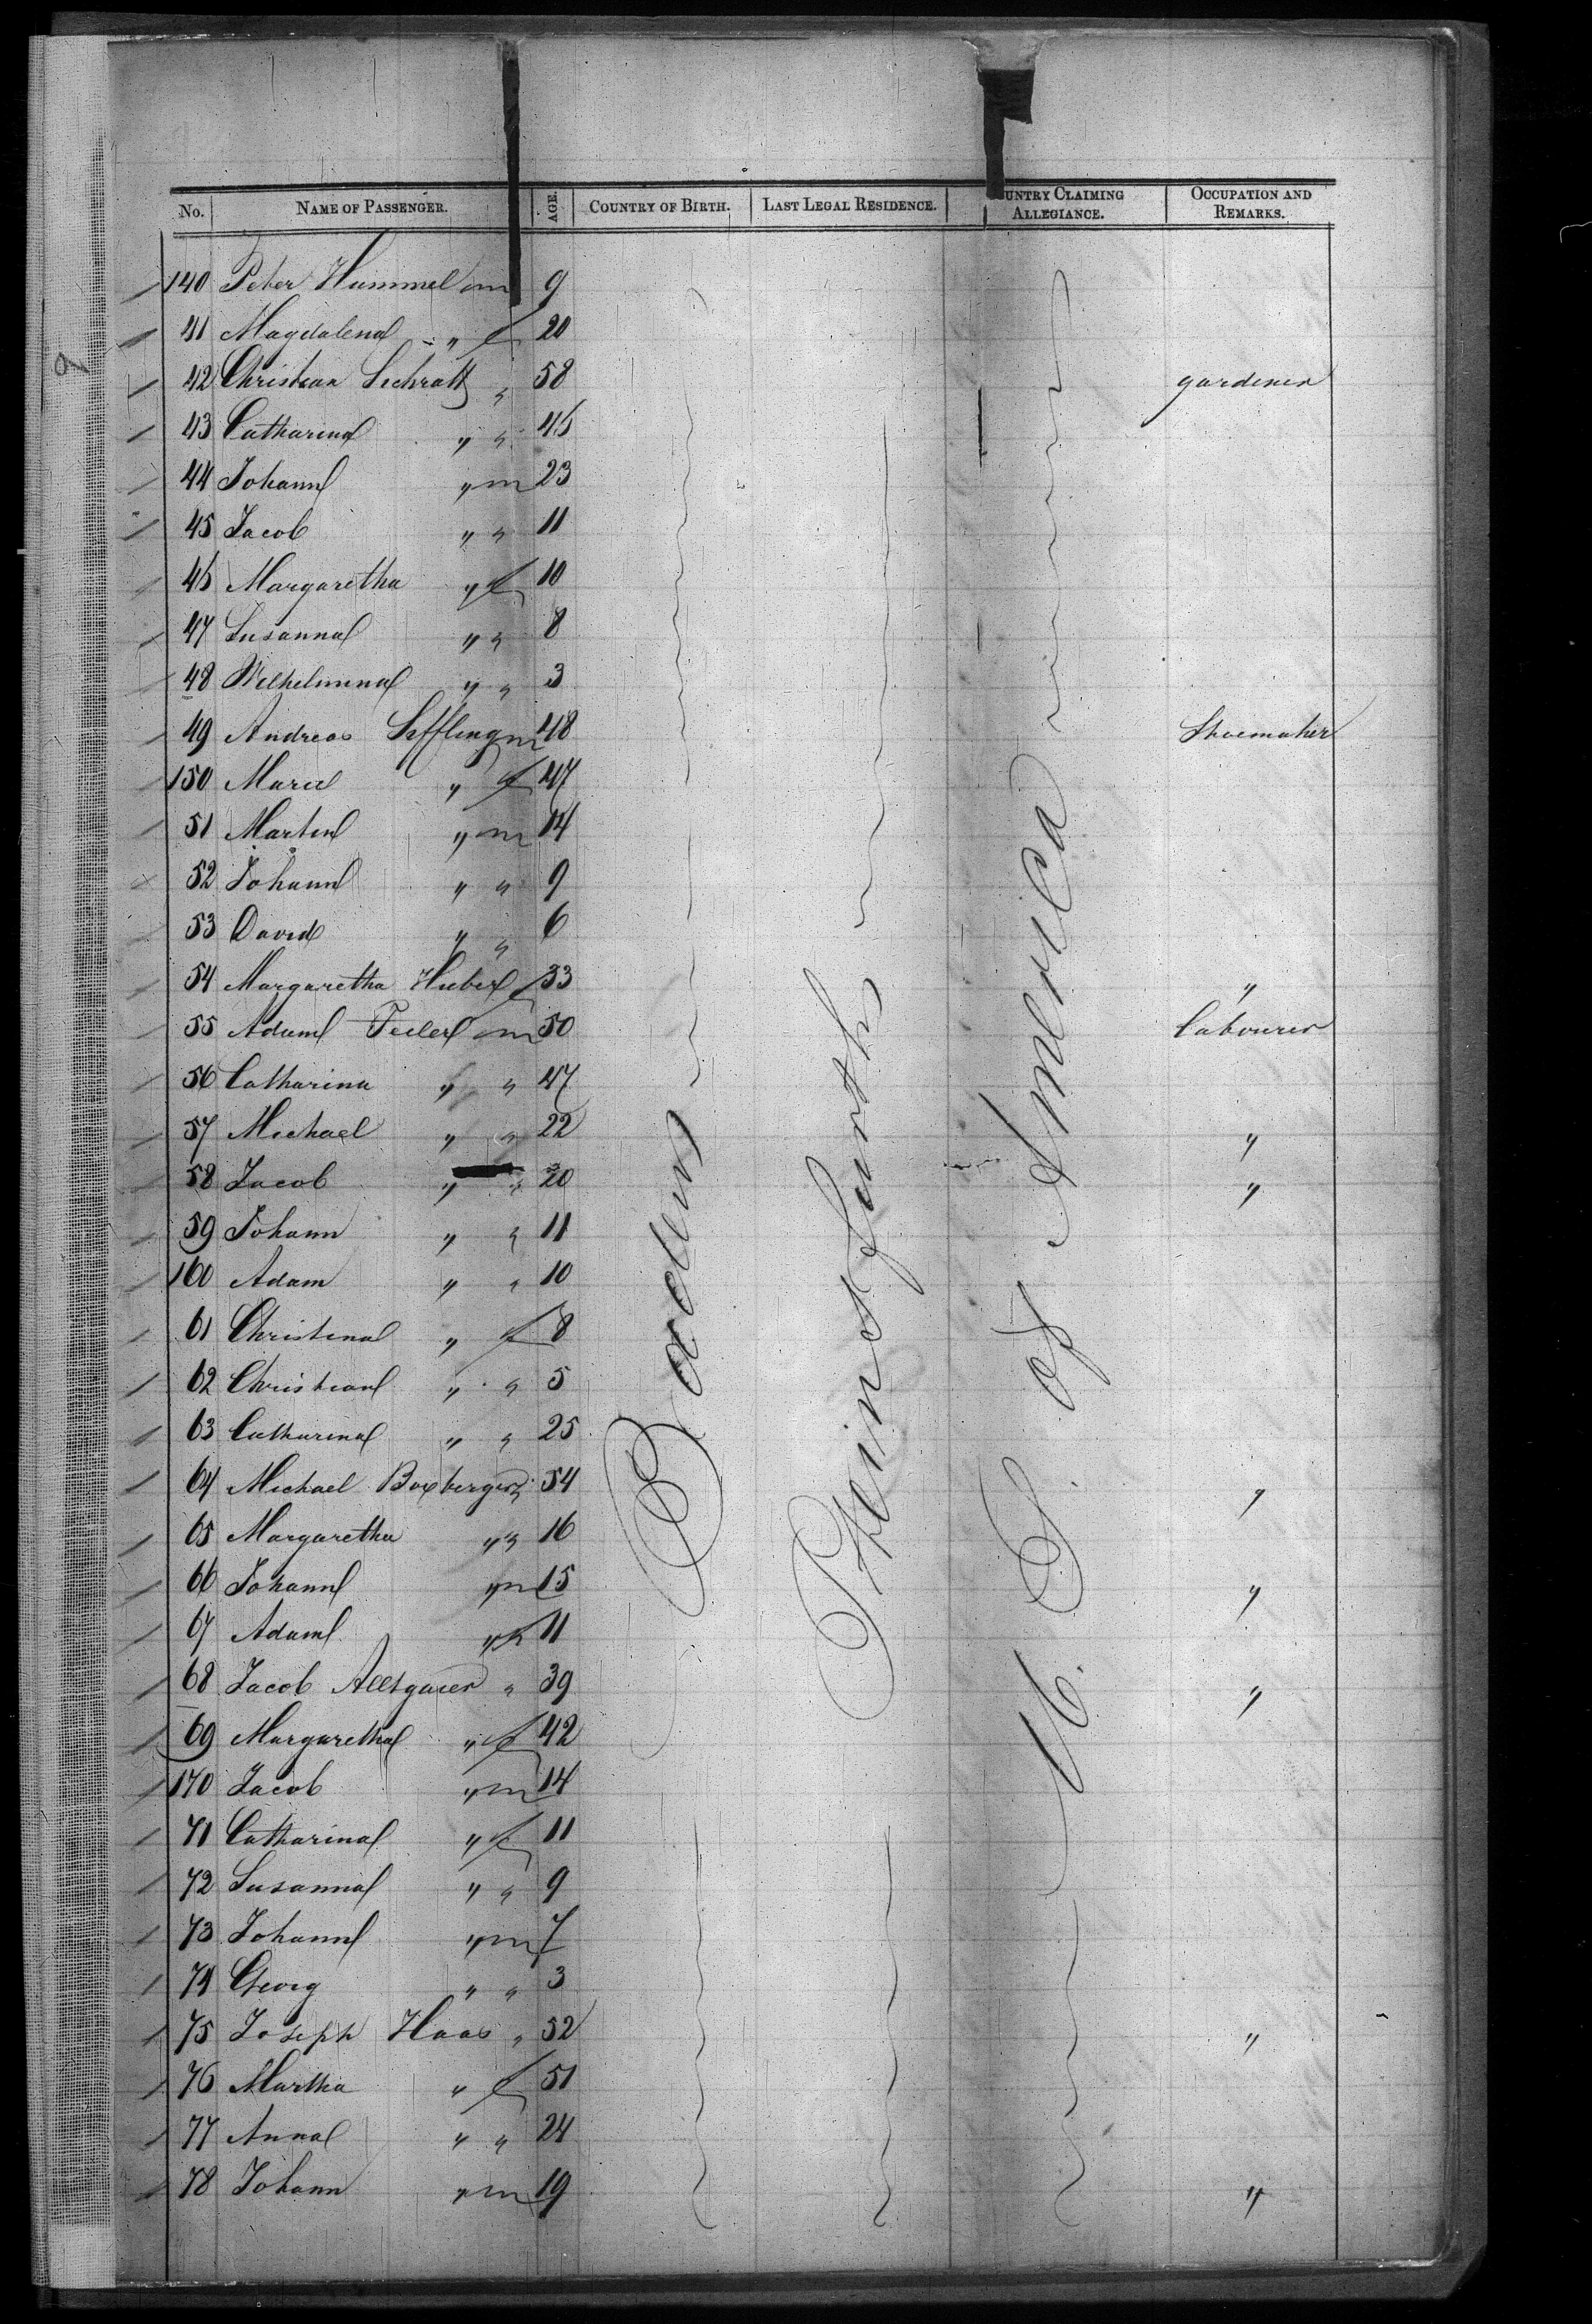 9
No. NAME OF PASSENGER. AGE. COUNTRY OF BIRTH. LAST LEGAL RESIDENCE. UNTRY CLAIMING ALLEGIANCE. OCCUPATION AND REMARKS.
140 Peter Hummel m 9
41 Magdalena " f 20
42 Christian Schratt " 58 gardener
43 Catharina " " 45
44 Johann " m 23
45 Jacob " " 11
46 Margaretha " f 10
47 Susanna " " 8
48 Wilhelmina " " 3
49 Andreas Siffling m 48 Shoemaker
150 Maria " f 47
51 Martin " m 14
52 Johann " " 9
53 David " " 6
54 Margaretha Huber f 33 "
55 Adam m 50 Labourer
56 Catharina " " 47
57 Michael " " 22 "
58 Jacob " " 20 "
59 Johann " " 11
160 Adam " " 10
61 Christina " f 8
62 Christian " " 5
63 Catharina " " 25
64 Michael Boxberger " 54 "
65 Margaretha " " 16
66 Johann " m 15 "
67 Adam " " 11
68 Jacob Allgaier " 39 "
69 Margaretha " f 42
170 Jacob " m 14
71 Catharina " f 11
72 Susanna " " 9
73 Johann " m 7
74 Georg " " 3
75 Joseph Haas " 52 "
76 Martha " f 51
77 Anna " " 24
78 Johann " m 19 "
Baden
U. S. of America